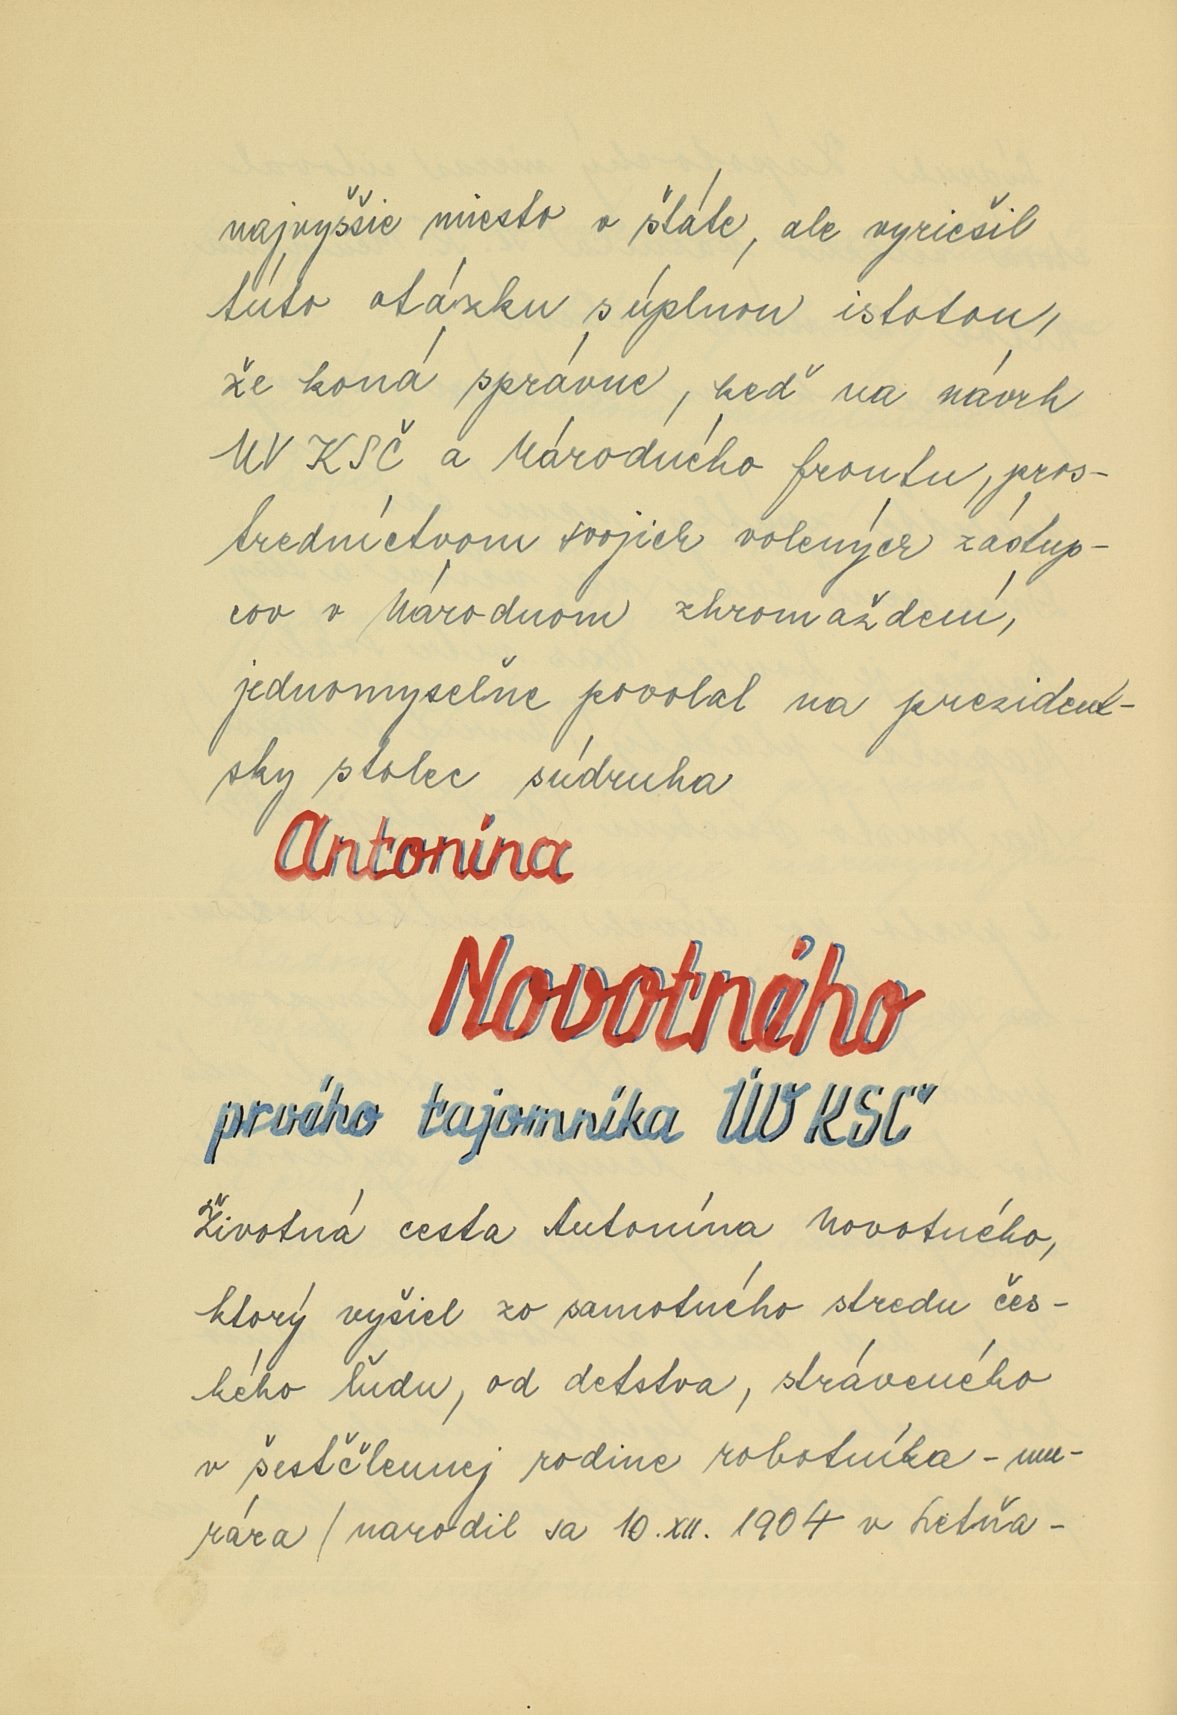 najvyššie miesto v štáte, ale vyriešil
túto otázku súplnou istotou,
že koná správne, keď na návrh
ÚV KSČ a Národného frontu, pros-
tredníctvom svojich volených zástup-
cov v Národnom zhromaždení,
jednomyseľne povolal na prezident-
sky stolec súdruha
Antonína
Novotného
prvého tajomníka ÚV KSČ
Životná cesta Antonína Novotného,
ktorý vyšiel zo samotného stredu čes-
kého ľudu, od detstva, stráveného
v šesťčlennej rodine robotníka - mu-
rára / narodil sa 10. XII. 1904 v Letňa-